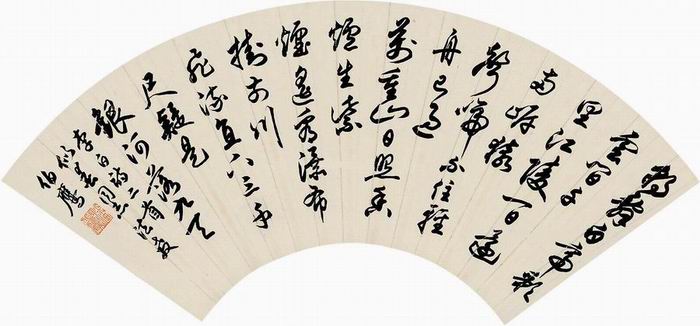 朝辭白帝彩
雲間千
里江陵一日還
兩岸猿
聲啼不住輕
舟已過
萬重山日照香
爐生紫
煙遙看瀑布
掛前川
飛流直下三千
尺疑是
銀河落九天
李白詩二首
同志法教
伯鷹